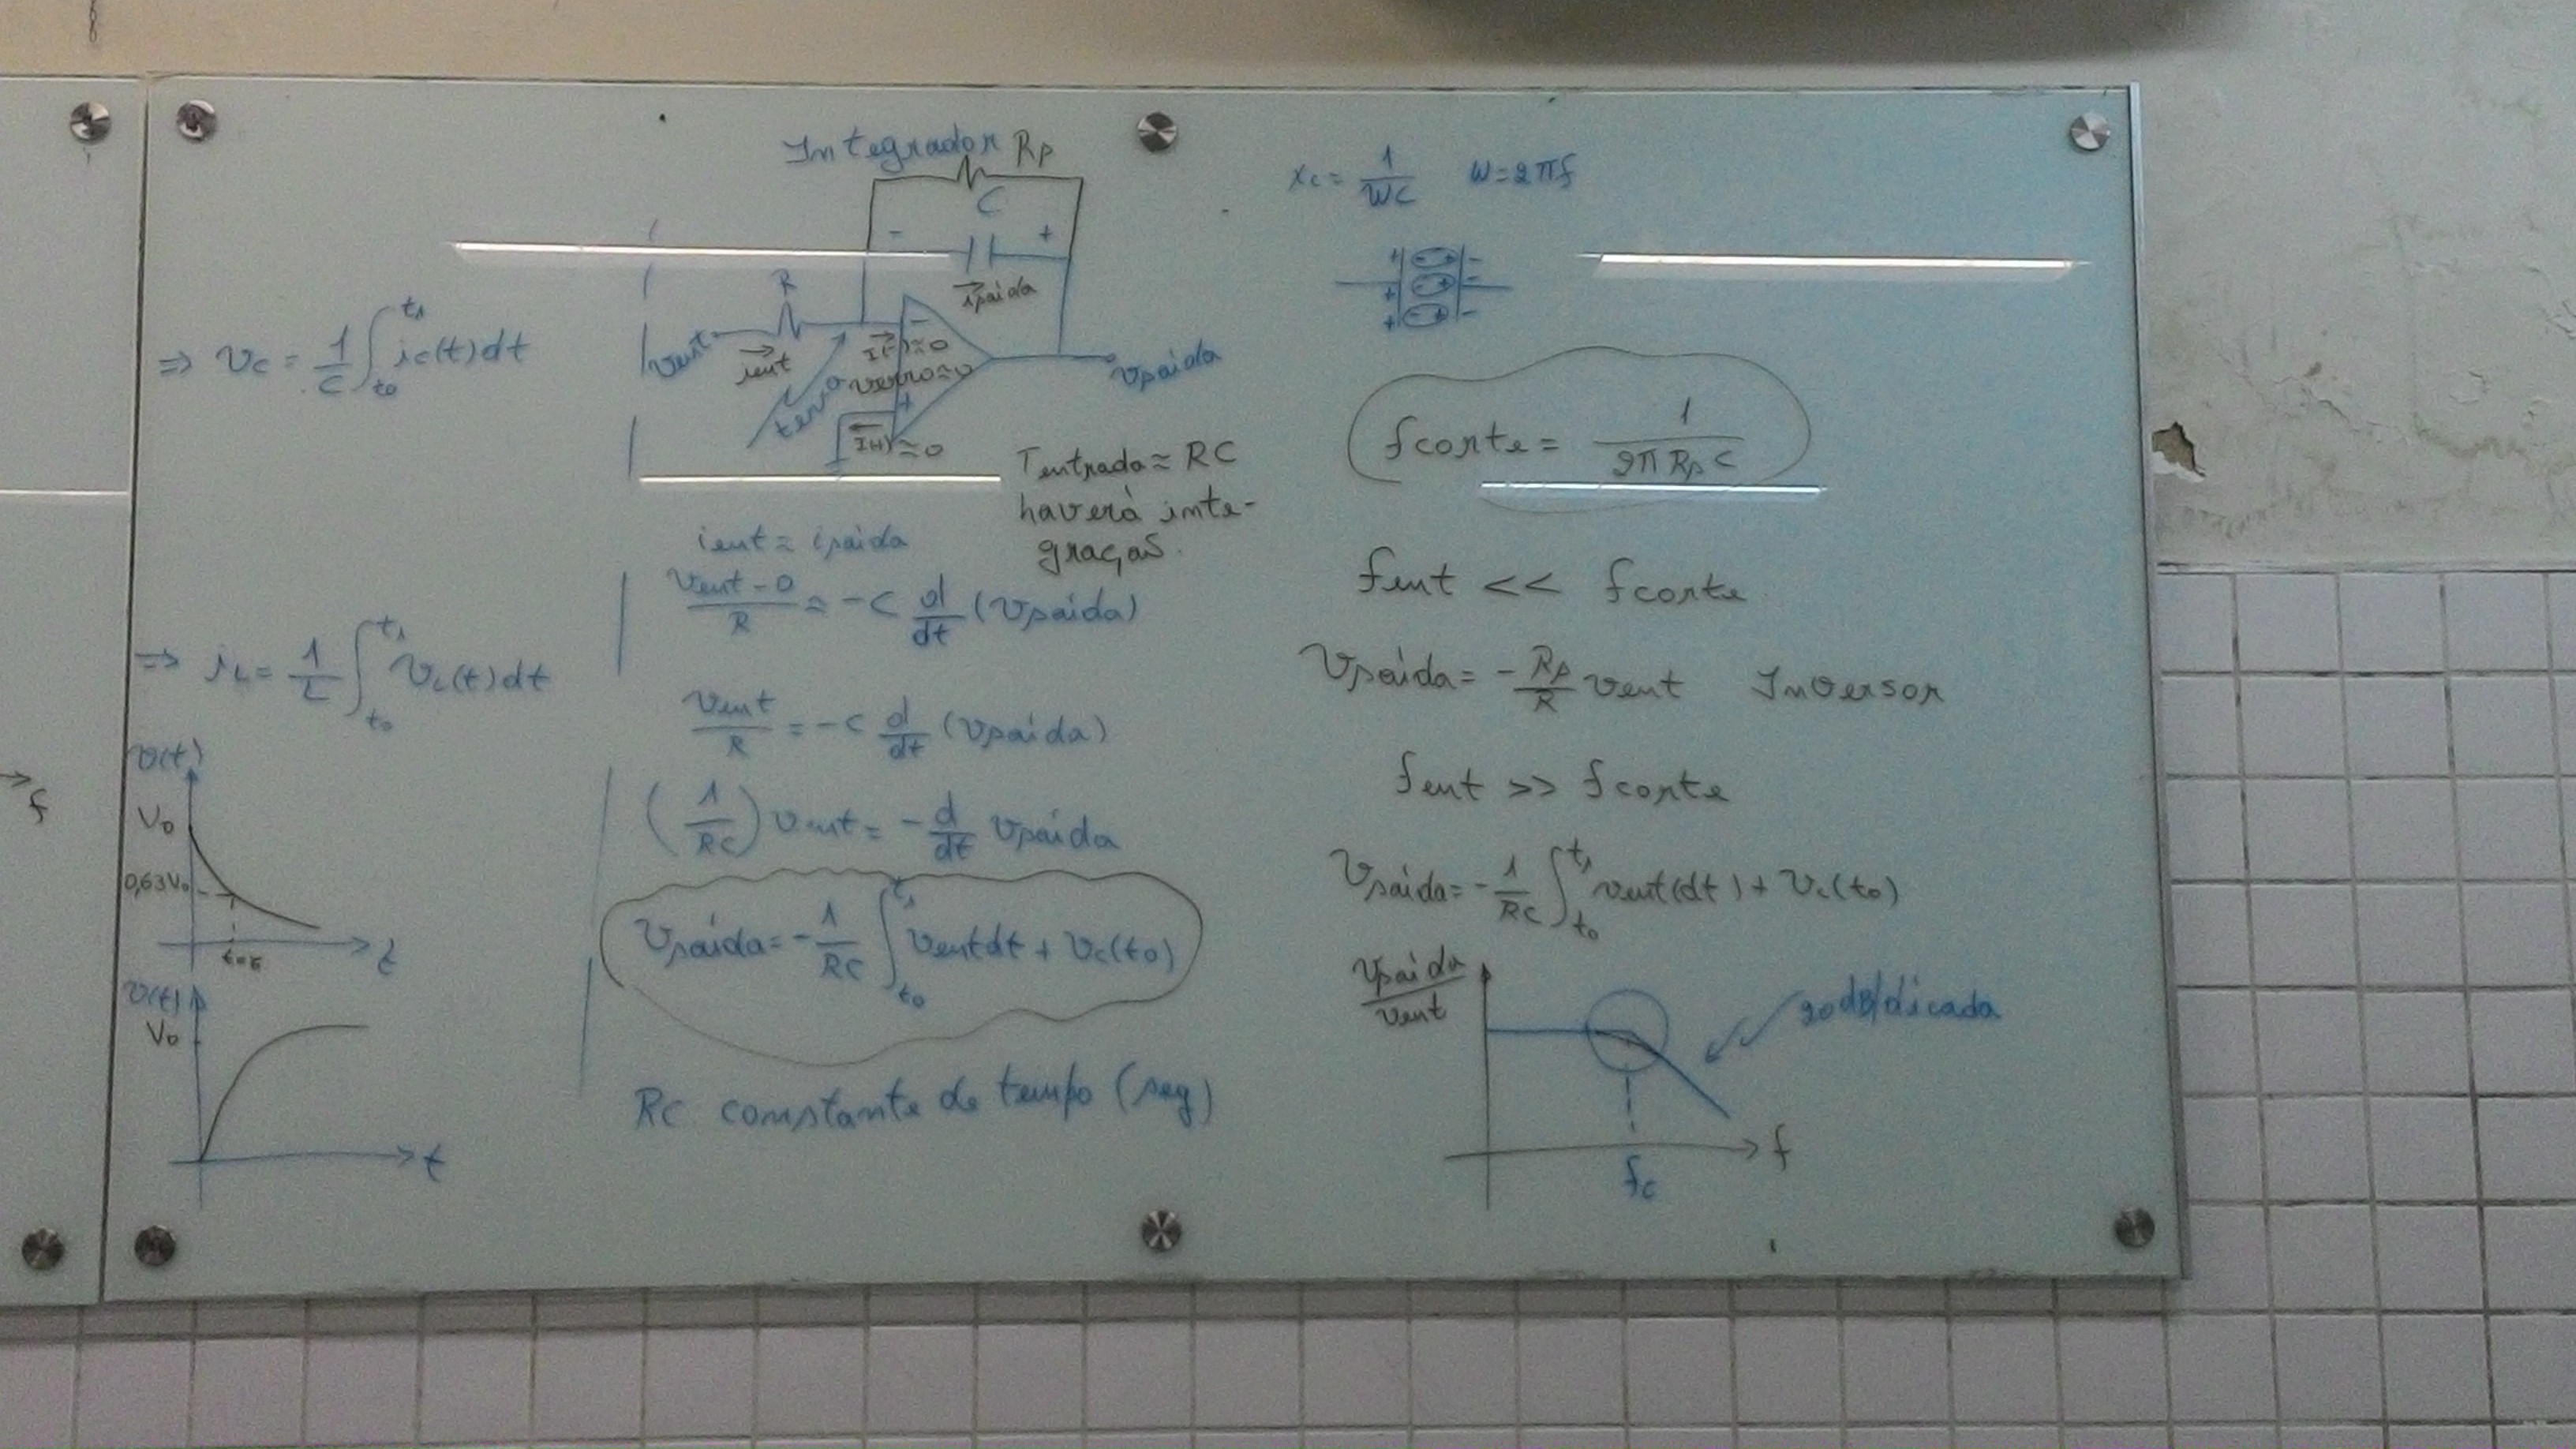 ⇒ vc = 1/C ∫t0^t1 ic(t)dt
⇒ iL = 1/L ∫t0^t1 vL(t)dt
v(t)
Vo
0,63Vo
t=τ
t
v(t)
Vo
t
f
Integrador Rp
C
- +
isaida
R
vent
ient
tensão
I(-)≈0
verro≈0
I(+)≈0
-
+
vsaida
Tentrada ≈ RC
haverá inte-
gração.
ient ≈ isaida
(vent - 0)/R ≈ -C d/dt (vsaida)
vent/R = -C d/dt (vsaida)
(1/RC) vent = -d/dt vsaida
vsaida = -1/RC ∫t0^t1 vent dt + vc(t0)
RC constante de tempo (seg)
xc = 1/WC W=2πf
+ - + -
+ - + -
+ - + -
fcorte = 1/(2π Rp C)
fent << fcorte
vsaida = -Rp/R vent Inversor
fent >> fcorte
vsaida = -1/RC ∫t0^t1 vent(dt) + vc(t0)
vsaida/vent
20dB/dicada
f
fc